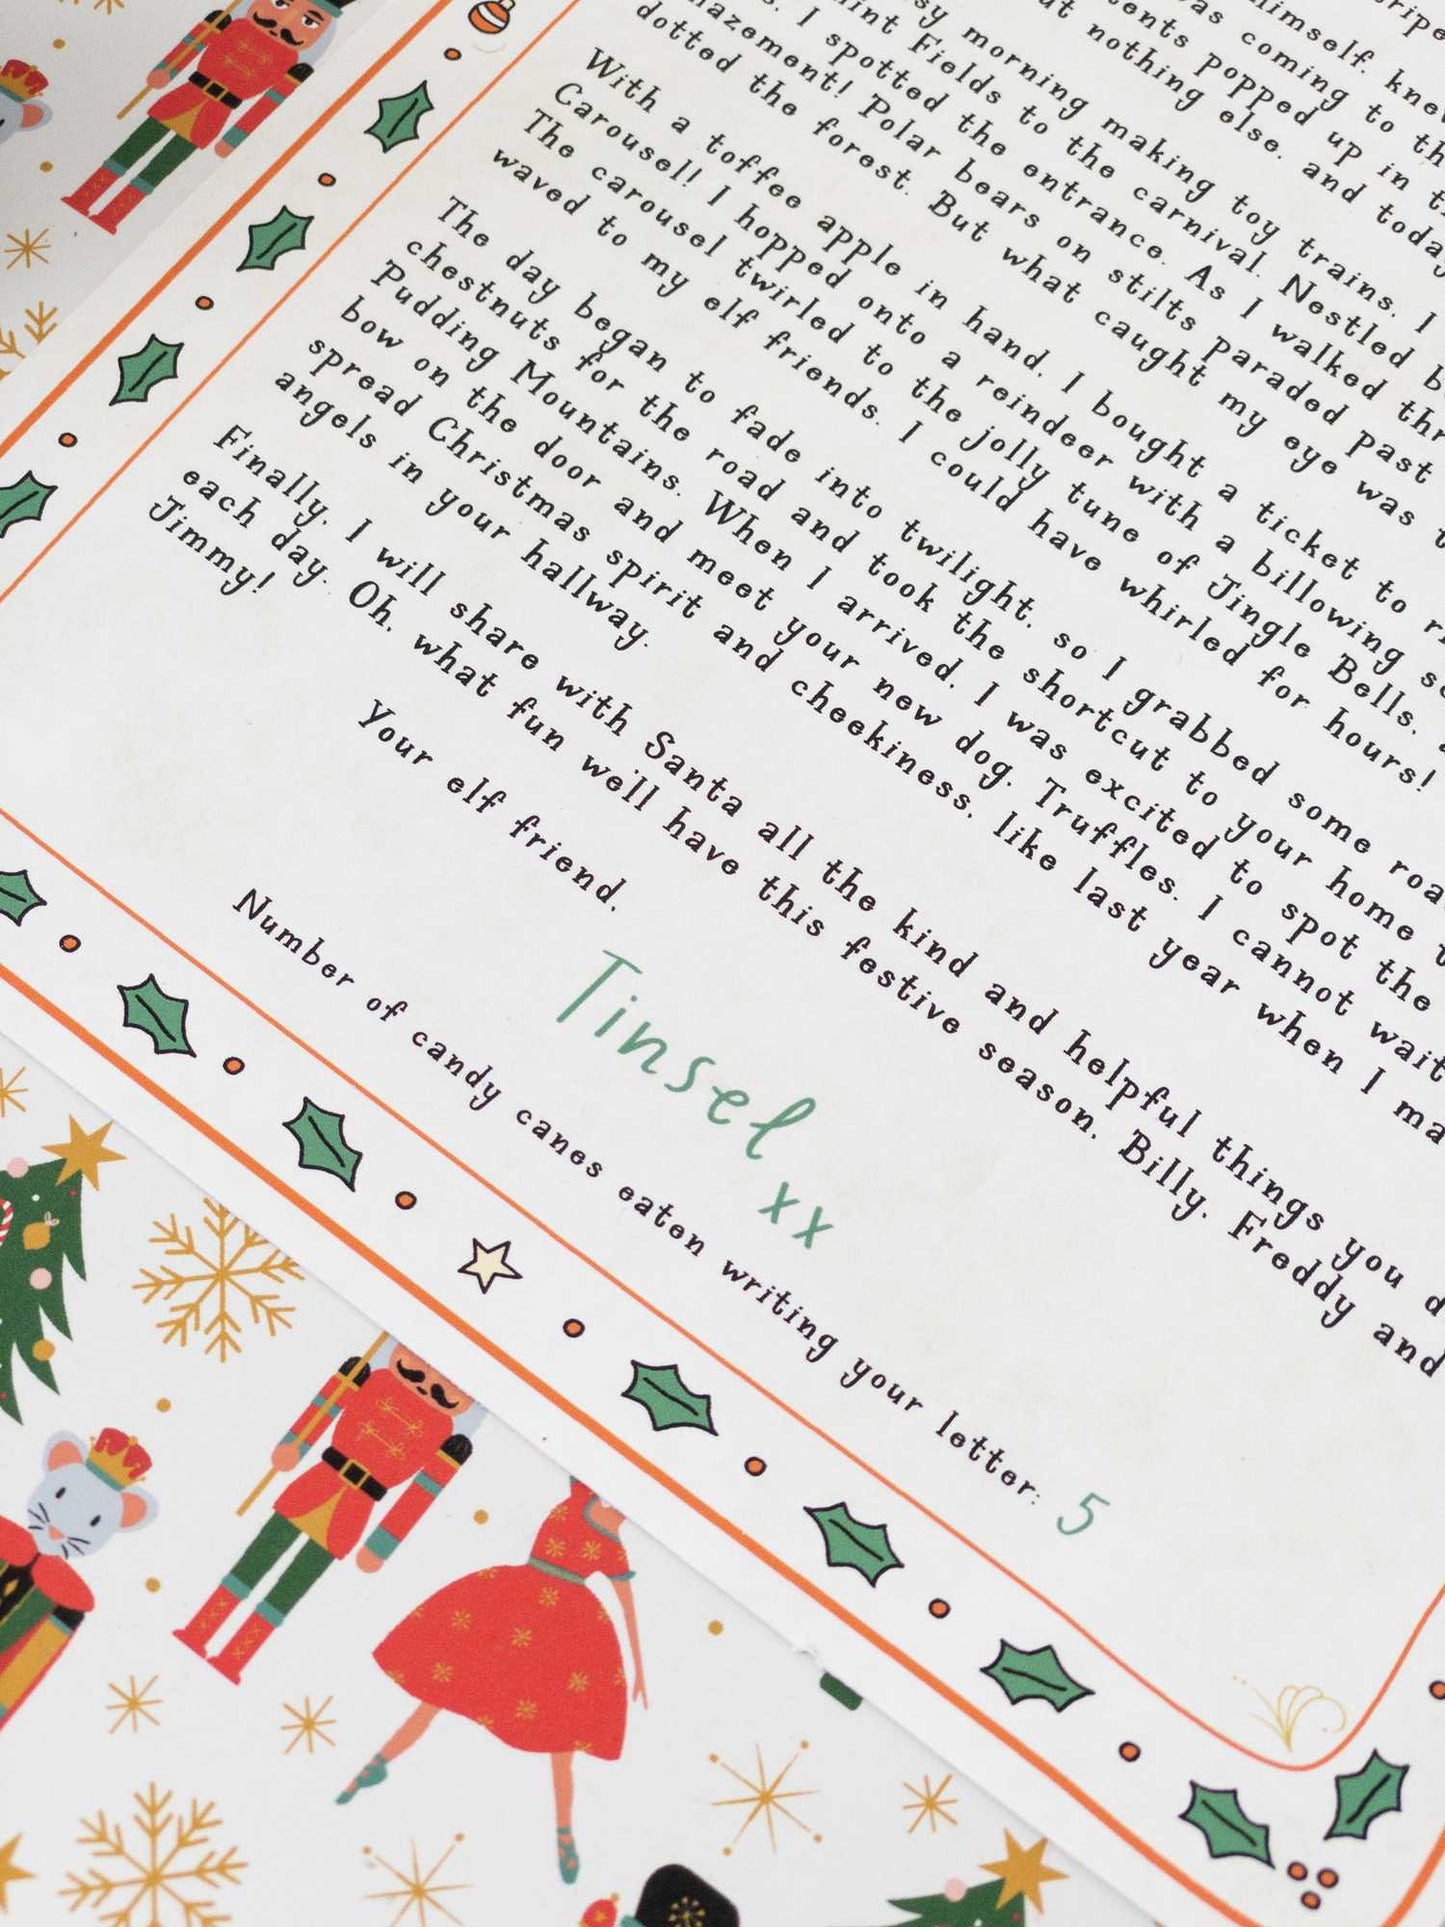 himself, knew
was coming to
tents popped up in
nothing else, and today
morning making toy trains, I
Fields to the carnival. Nestled
I spotted the entrance. As I walked
Polar bears on stilts paraded past
dotted the forest. But what caught my eye was
With a toffee apple in hand, I bought a ticket to
Carousel! I hopped onto a reindeer with a billowing
The carousel twirled to the jolly tune of Jingle Bells,
waved to my elf friends. I could have whirled for hours!
The day began to fade into twilight, so I grabbed some
chestnuts for the road and took the shortcut to your home
Pudding Mountains. When I arrived, I was excited to spot the
bow on the door and meet your new dog, Truffles. I cannot wait
spread Christmas spirit and cheekiness, like last year when I
angels in your hallway.
Finally, I will share with Santa all the kind and helpful things you
each day. Oh, what fun we'll have this festive season, Billy, Freddy and
Jimmy!
Your elf friend,
Tinsel xx
Number of candy canes eaten writing your letter: 5